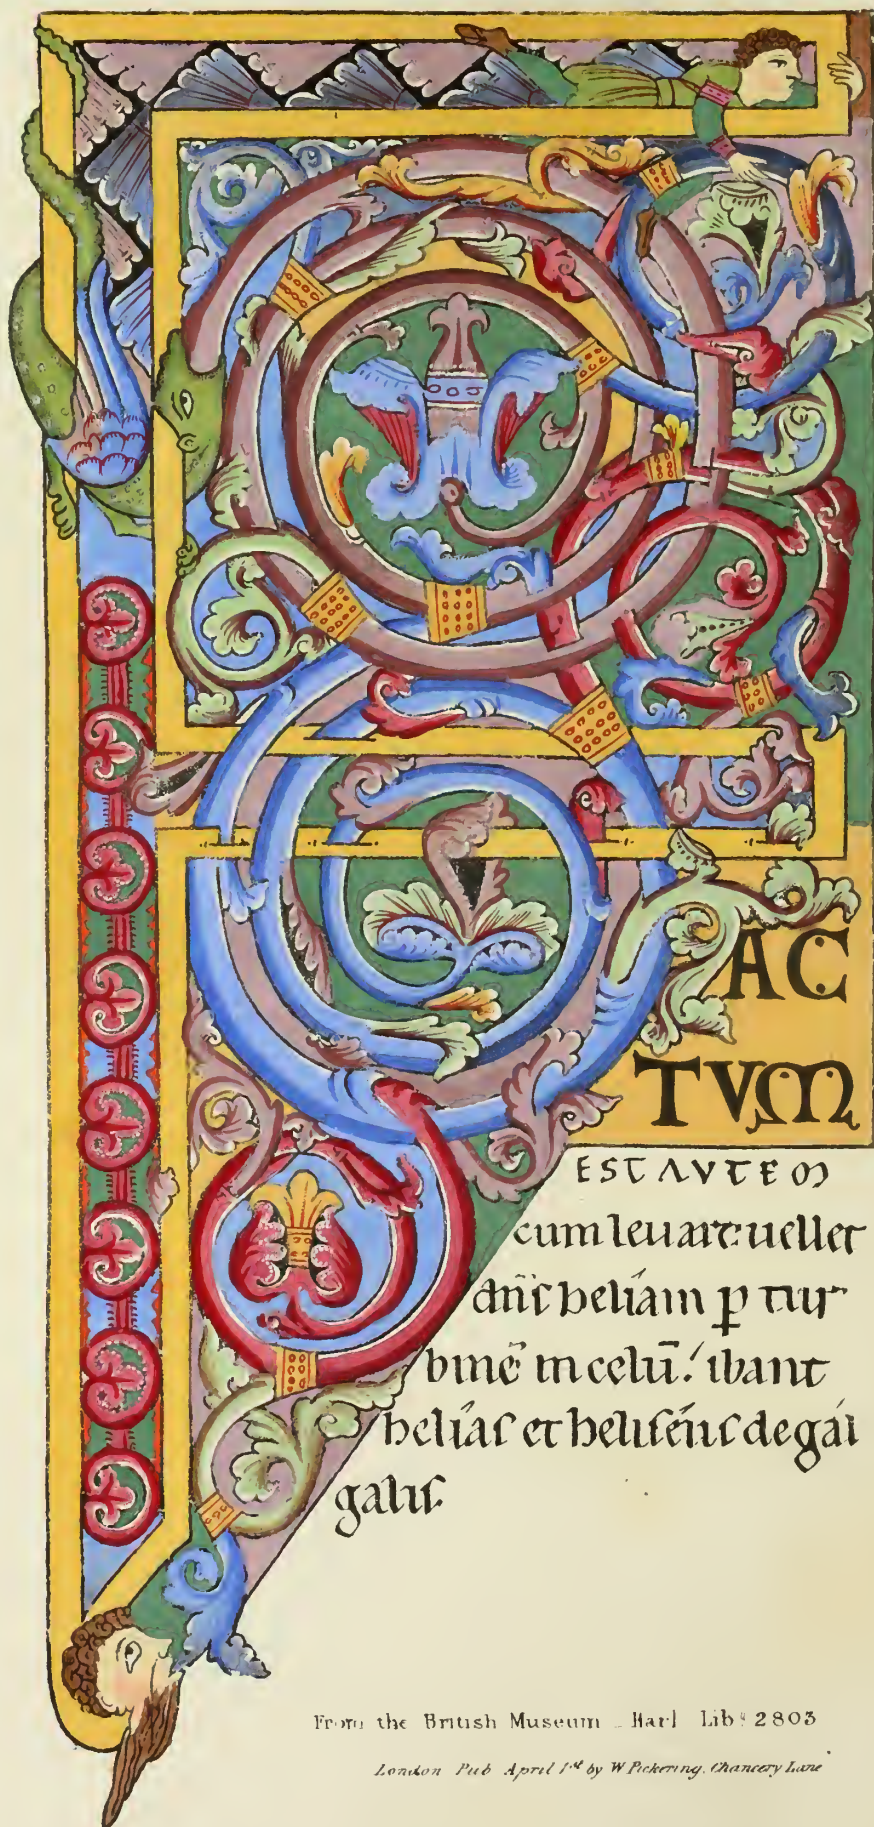 AC
TVM
EST AVTEM
cum leuare uellet
dn̄s heliam p̱ tur
binē in celū. ibant
helias et heliseus de gal
galis.
From the British Museum _ Harl Lib: 2803
London Pub April 1st by W Pickering, Chancery Lane